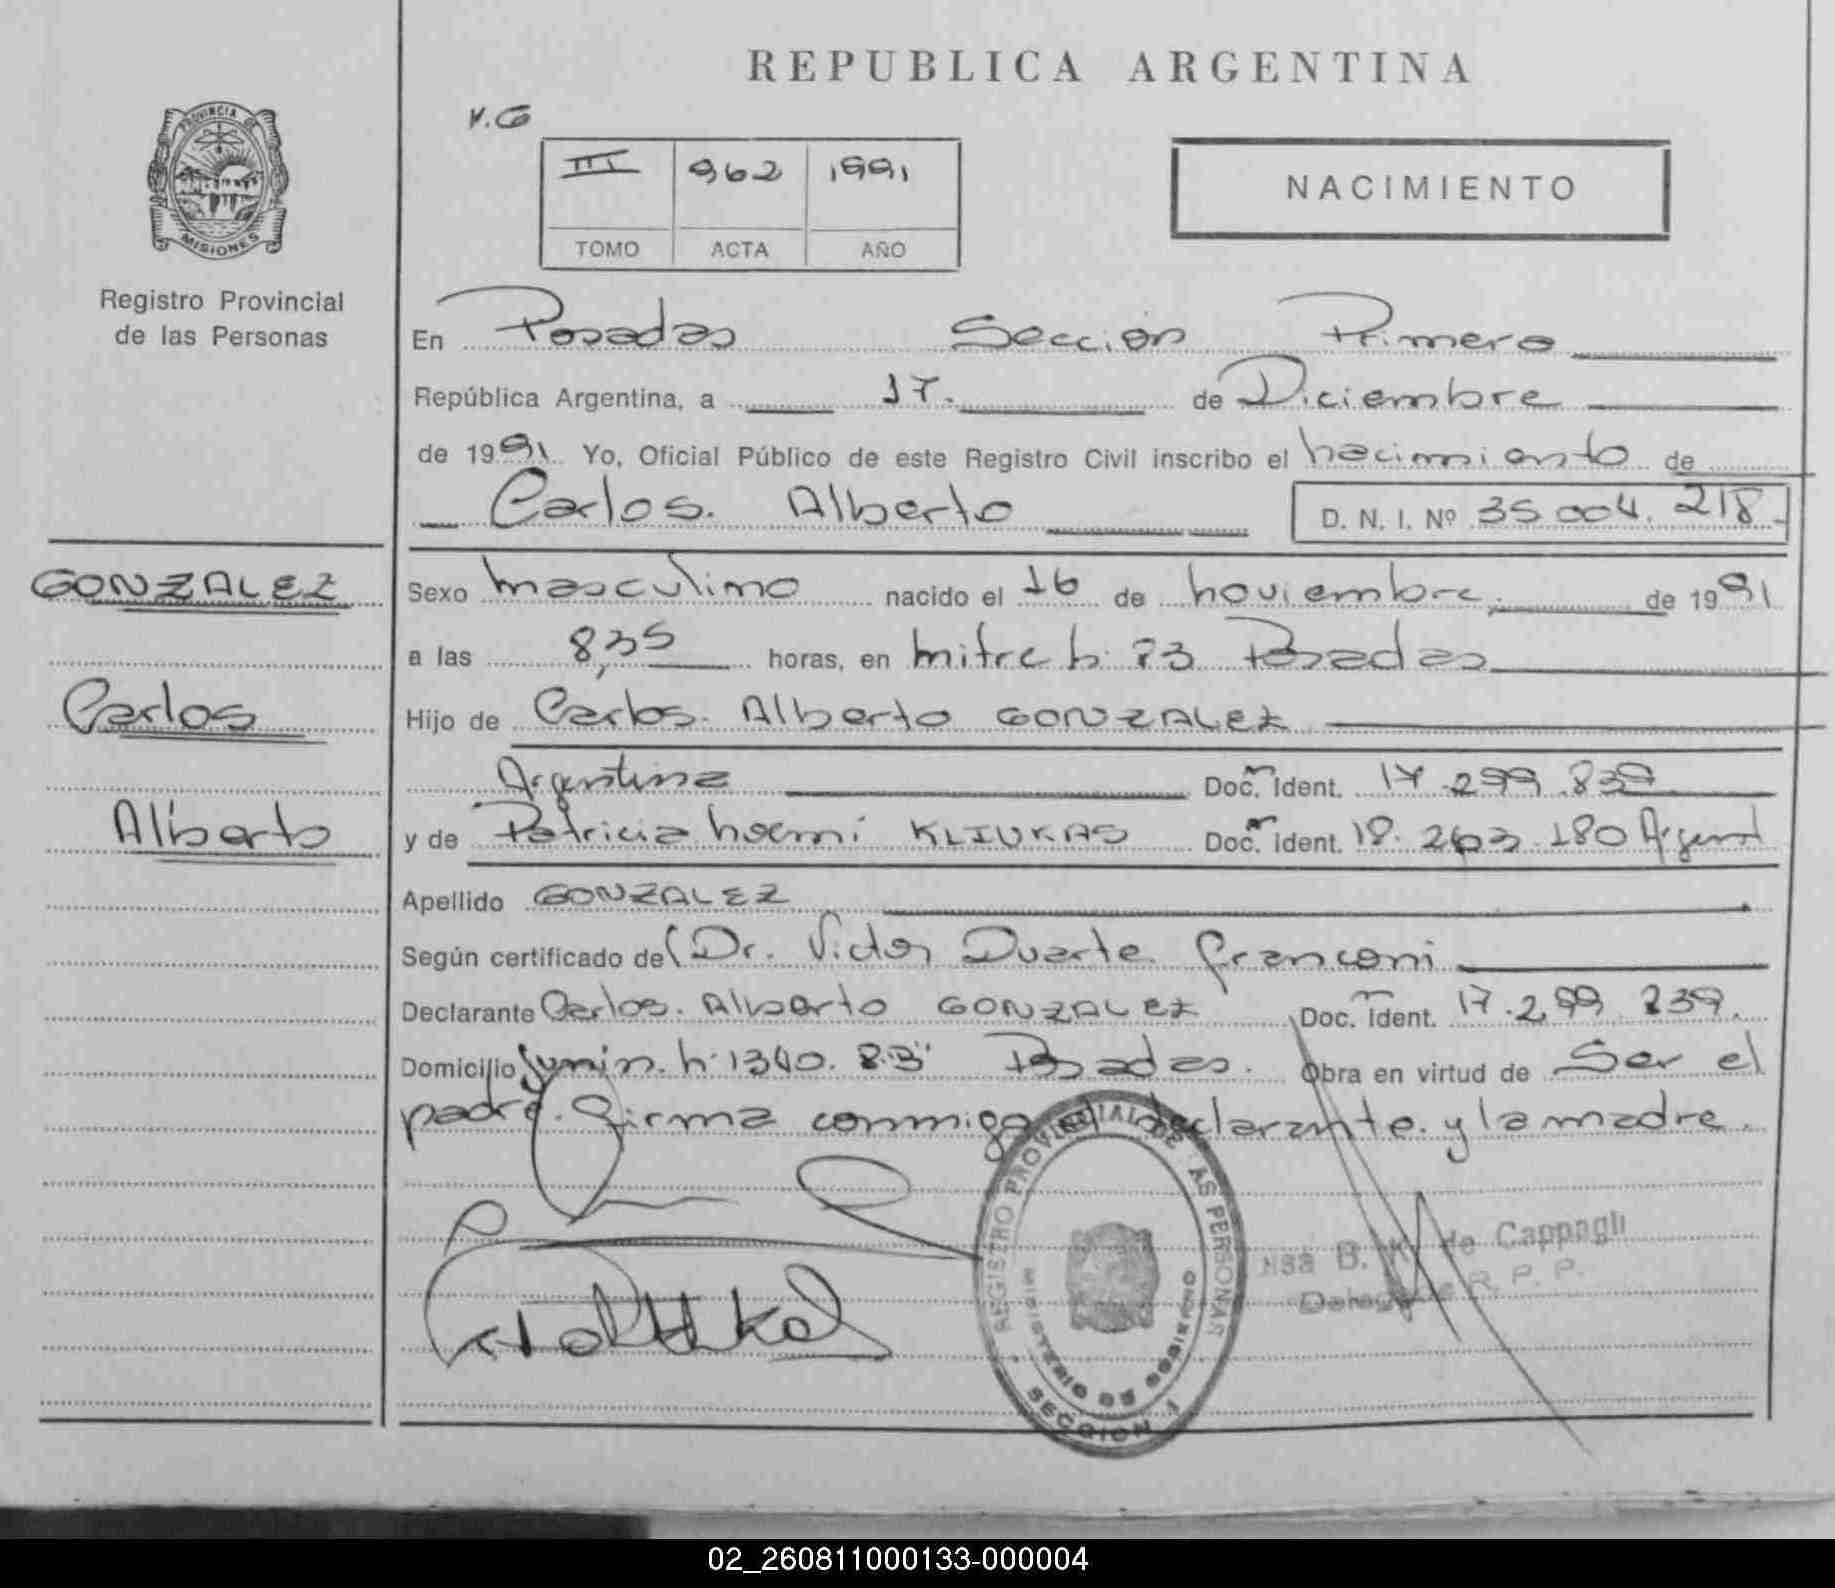 REPUBLICA ARGENTINA
PROVINCIA DE
MISIONES
Registro Provincial
de las Personas
V.G
III 962 1991
TOMO ACTA AÑO
NACIMIENTO
En Posadas Sección Primera
República Argentina, a 17. de Diciembre
de 1991 Yo, Oficial Público de este Registro Civil inscribo el nacimiento de
Carlos. Alberto D. N. I. Nº 35.004.218.-
GONZALEZ
Carlos
Alberto
Sexo masculino nacido el 16 de noviembre de 1991
a las 8,35 horas, en mitre Posadas
Hijo de Carlos. Alberto GONZALEZ
Argentina Doc. Ident. 17.299.839
y de Patricia Noemi KLIUKAS Doc. Ident. 18.263.180 Argent
Apellido GONZALEZ
Según certificado del Dr. Victor Duarte Franconi
Declarante Carlos. Alberto GONZALEZ Doc. Ident. 17.299.839.
Domicilio Junin. n. 1340. Posadas. Obra en virtud de Ser el
padre. Firma conmigo el declarante. y la madre.
REGISTRO PROVINCIAL DE LAS PERSONAS
MINISTERIO DE GOBIERNO
SECCION 1
B. K. de Cappagli
Delegada R. P. P.
02_260811000133-000004